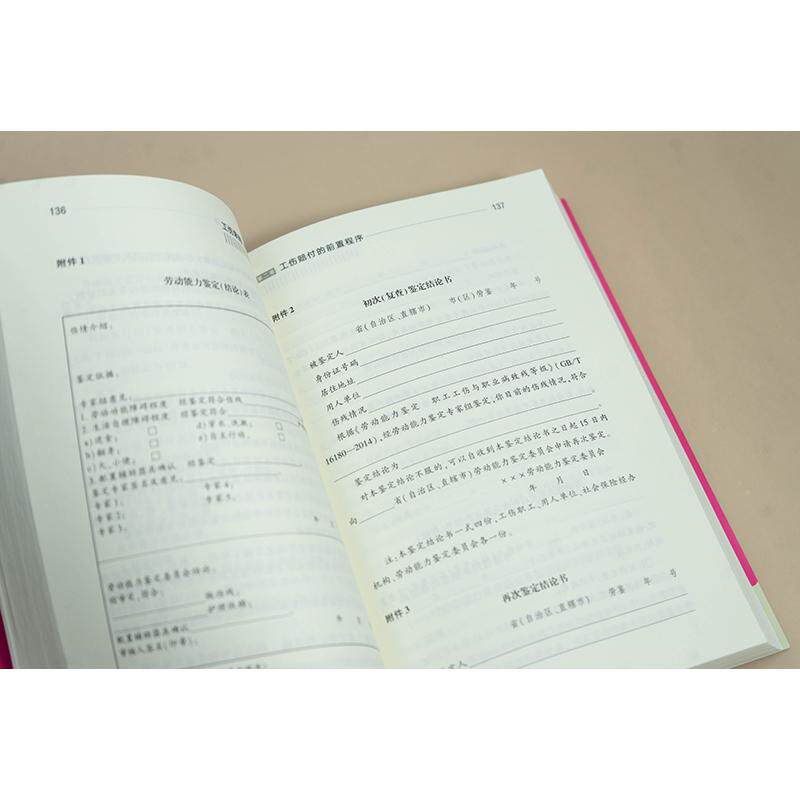 136
附件1
劳动能力鉴定(结论)表
伤情介绍:
鉴定依据:
专家组意见:
1. 劳动功能障碍程度 经鉴定符合伤残
2. 生活自理障碍程度 经鉴定符合
a)进食: □ d)穿衣、洗漱: □
b)翻身: □ e)自主行动: □
c)大、小便: □
3. 配置辅助器具确认 经鉴定
鉴定专家签名及意见:
专家1: 专家4:
专家2: 专家5:
专家3:
劳动能力鉴定委员会结论:
经审定,符合: 级伤残;
护理依赖;
配置辅助器具确认
审核人签名(印章):
137
工伤赔付的前置程序
附件2
初次(复查)鉴定结论书
省(自治区、直辖市) 市(区)劳鉴 年 号
被鉴定人
身份证号码
居住地址
用人单位
伤残情况
根据《劳动能力鉴定 职工工伤与职业病致残等级》(GB/T
16180—2014),经劳动能力鉴定专家组鉴定,你目前的伤残情况,符合
鉴定结论为
对本鉴定结论不服的,可以自收到本鉴定结论书之日起15日内
向 省(自治区、直辖市)劳动能力鉴定委员会申请再次鉴定。
×××劳动能力鉴定委员会
年 月 日
注:本鉴定结论书一式四份,工伤职工、用人单位、社会保险经办
机构、劳动能力鉴定委员会各一份。
附件3
再次鉴定结论书
省(自治区、直辖市) 劳鉴 年 号